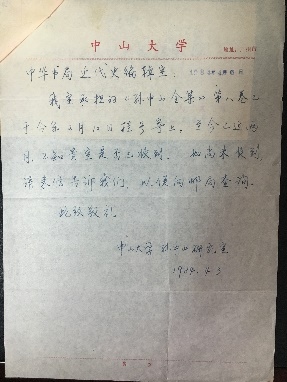 中山大学
中华书局近代史编辑室：
我室承担的《孙中山全集》第八卷已
于今年2月12日挂号寄出，至今已近两
月，不知贵室是否已收到。如尚未收到
请来信告诉我们，以便向邮局查询。
此致敬礼
中山大学孙中山研究室
1984.4.5